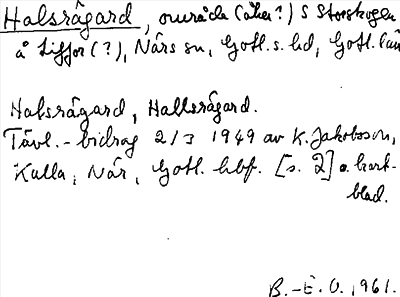 Halsrågard, område (åker?) S Storskogen
å Liffor (?), Närs sn, Gotl. s. hd, Gotl. län
Halsrågard, Hallsrågard.
Tävl.-bidrag 2/3 1949 av K. Jakobsson,
Kulla, När, Gotl. hbf. [s. 2] o. kart-
blad.
B.-E. O. 1961.